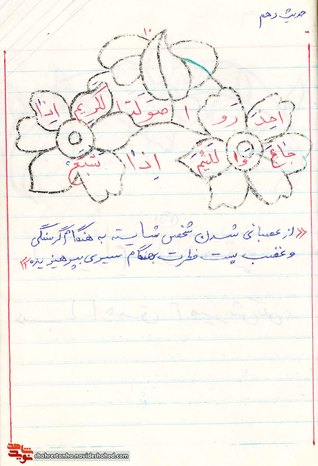 حدیث دهم
۱۰
احذَروا صَولَة الکَریمِ اِذا
جاعَ وَا للَئیم اِذا شَبَعَ
«از عصبانی شدن شخص شایسته به هنگام گرسنگی
و غضب پست فطرت هنگام سیری بپرهیزید»
نوید شاهد
shohrestanha.navideshahed.com